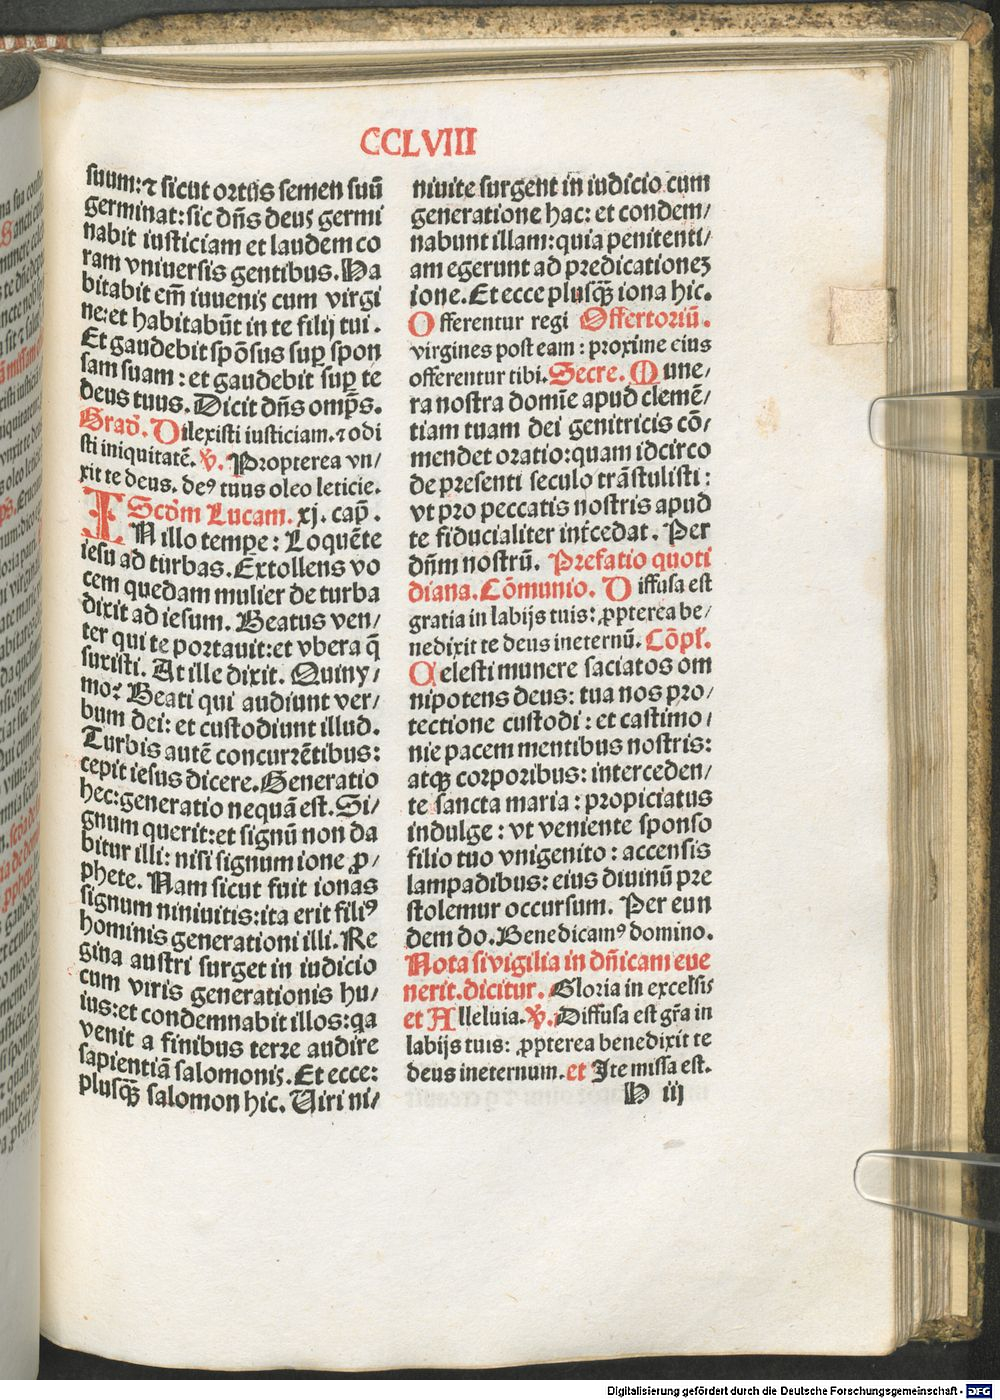 CCLVIII
suum: ⁊ sicut ortus semen suū
germinat: sic dn̄s deus germi
nabit iusticiam et laudem co
ram vniuersis gentibus. Ha
bitabit em̄ iuuenis cum virgi
ne: et habitabūt in te filij tui.
Et gaudebit spōsus suꝑ spon
sam suam: et gaudebit suꝑ te
deus tuus. Dicit dn̄s omp̄s.
Grad̄. Dilexisti iusticiam. ⁊ odi
sti iniquitatē. V̄. Propterea vn/
xit te deus. deꝰ tuus oleo leticie.
Scd̄m Lucam. xj. cap̄.
IN illo tempe: Loquēte
iesu ad turbas. Extollens vo
cem quedam mulier de turba
dixit ad iesum. Beatus ven/
ter qui te portauit: et vbera q̄
suxisti. At ille dixit. Quiny/
mo? Beati qui audiunt ver/
bum dei: et custodiunt illud.
Turbis autē concurrētibus:
cepit iesus dicere. Generatio
hec: generatio nequā est. Si/
gnum querit: et signū non da
bitur illi: nisi signum ione ꝓ/
phete. Nam sicut fuit ionas
signum niniuitis: ita erit filiꝰ
hominis generationi illi. Re
gina austri surget in iudicio
cum viris generationis hu/
ius: et condemnabit illos: qa
venit a finibus terre audire
sapientiā salomonis. Et ecce:
plusq̄ꝫ salomon hic. Uiri ni/
niuite surgent in iudicio cum
generatione hac: et condem/
nabunt illam: quia penitenti/
am egerunt ad predicationeꝫ
ione. Et ecce plusq̄ꝫ iona hic.
Offerentur regi Offertoriū.
virgines post eam: proxime eius
offerentur tibi. Secre. Mune/
ra nostra domīe apud clemē/
tiam tuam dei genitricis cō/
mendet oratio: quam idcirco
de presenti seculo trāstulisti:
vt pro peccatis nostris apud
te fiducialiter int̄cedat. Per
dn̄m nostrū. Prefatio quoti
diana. Cōmunio. Diffusa est
gratia in labijs tuis: ꝓpterea be/
nedixit te deus ineternū. Cōpl̄.
Celesti munere saciatos om
nipotens deus: tua nos pro/
tectione custodi: et castimo/
nie pacem mentibus nostris:
atqꝫ corporibus: interceden/
te sancta maria: propiciatus
indulge: vt veniente sponso
filio tuo vnigenito: accensis
lampadibus: eius diuinū pre
stolemur occursum. Per eun
dem do. Benedicamꝰ domino.
Nota si vigilia in dn̄icam eue
nerit. dicitur. Gloria in excelsis
et Alleluia. V̄. Diffusa est gr̄a in
labijs tuis: ꝓpterea benedixit te
deus ineternum. et Ite missa est.
H iij
Digitalisierung gefördert durch die Deutsche Forschungsgemeinschaft - DFG